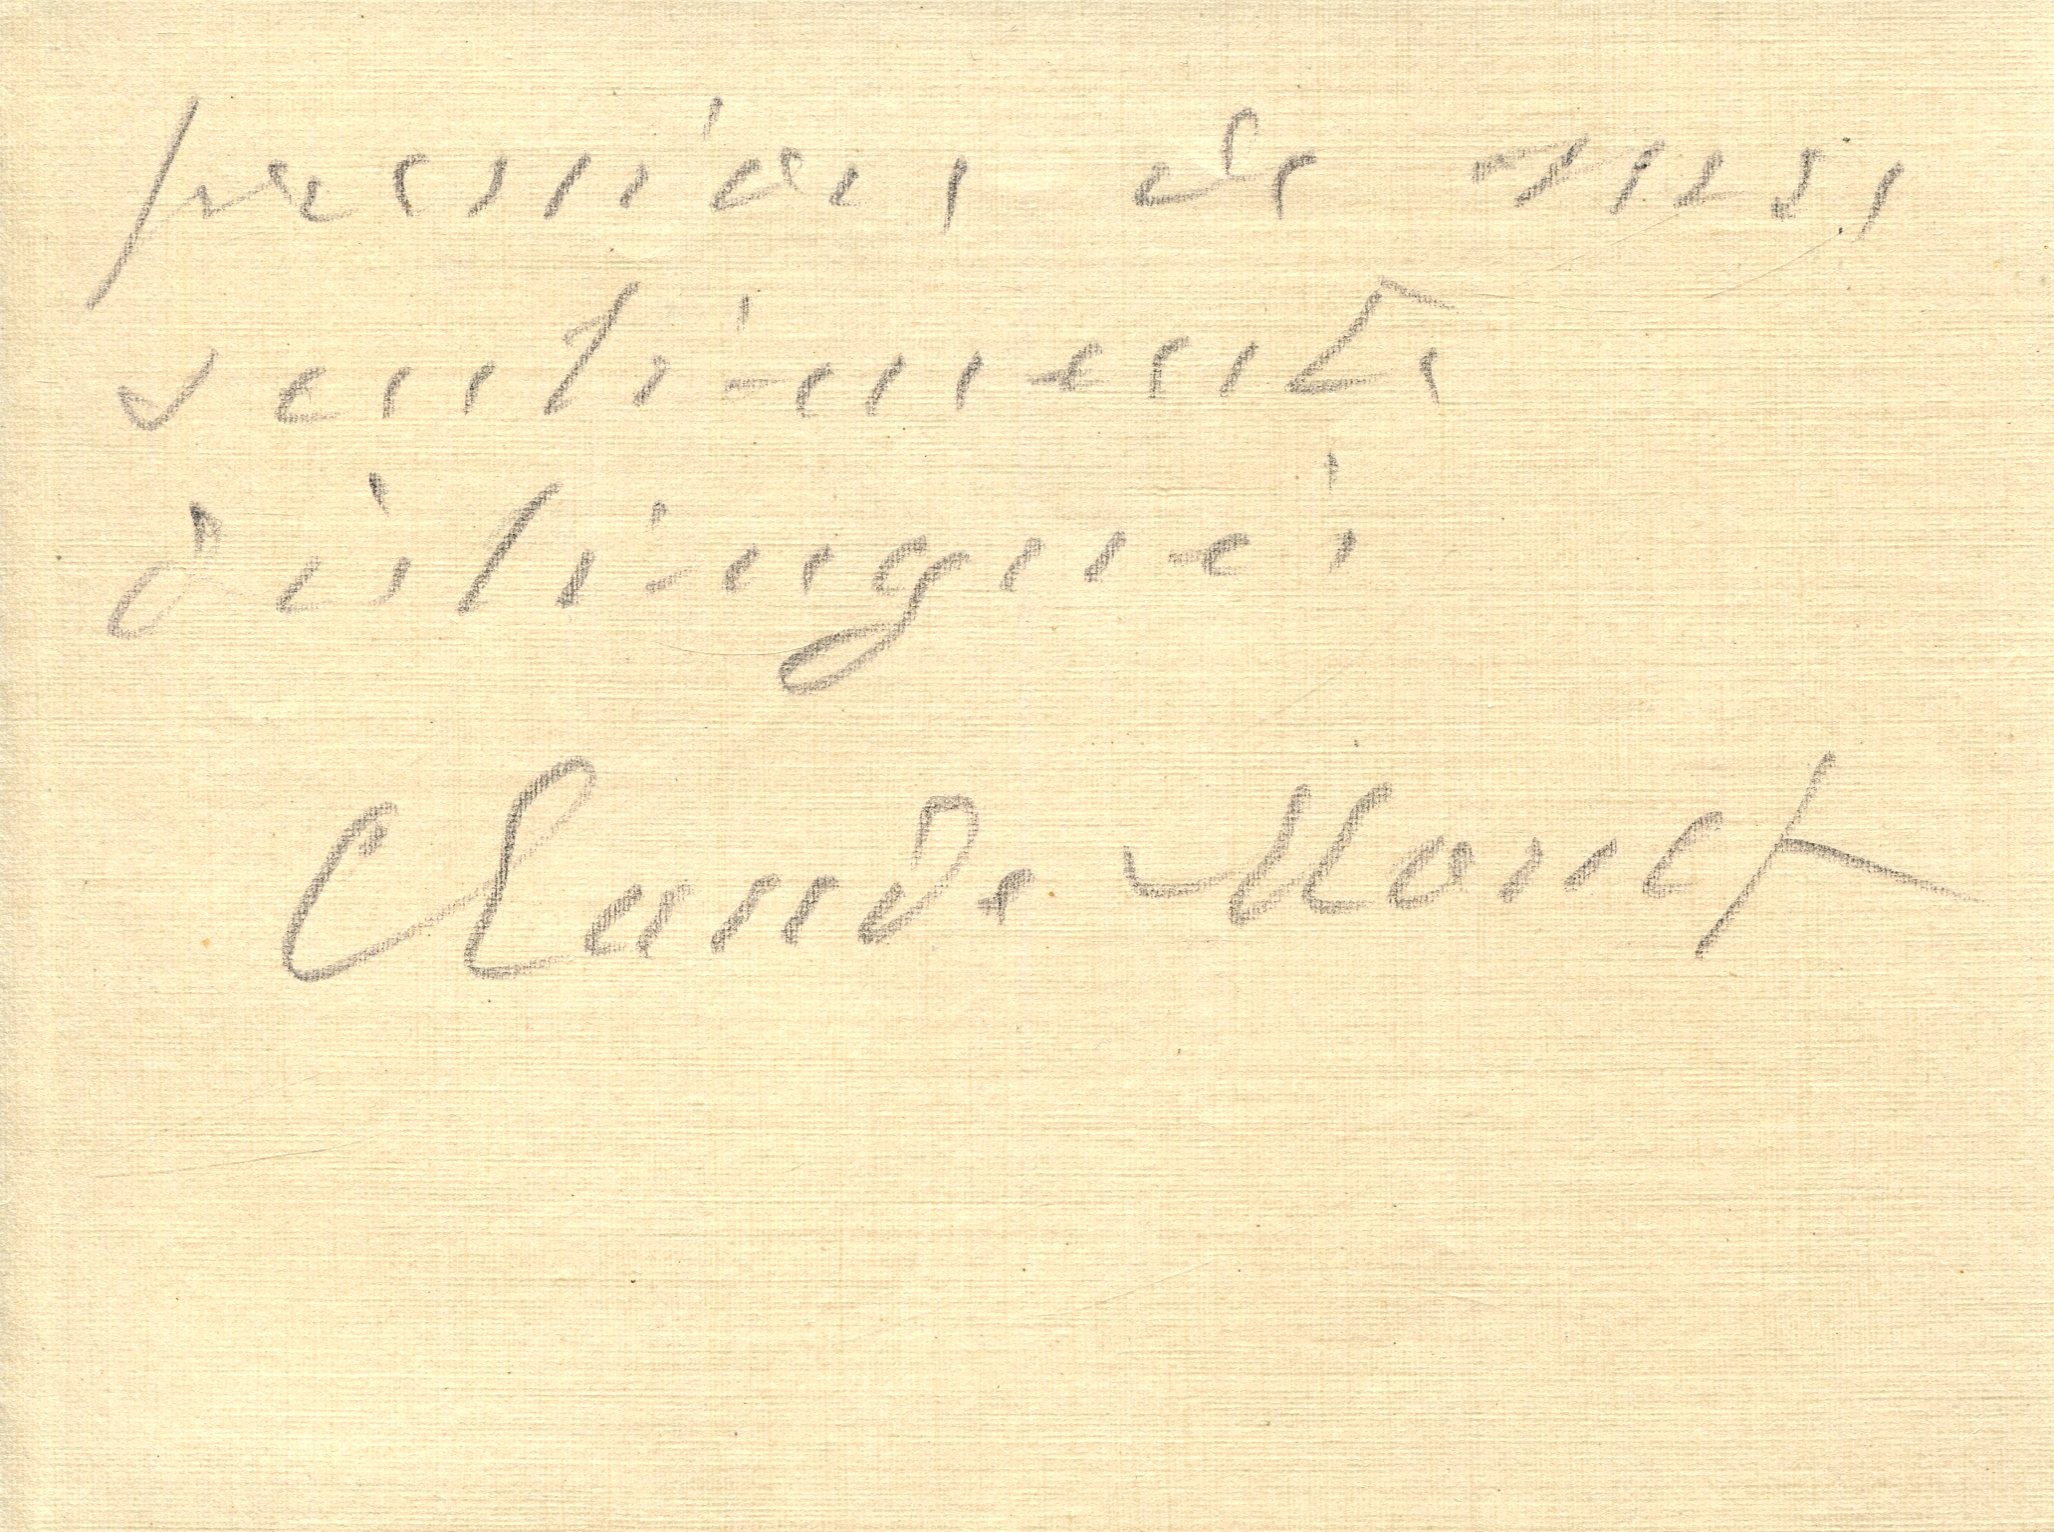 pression de mes
sentiments
distingués
Claude Monet